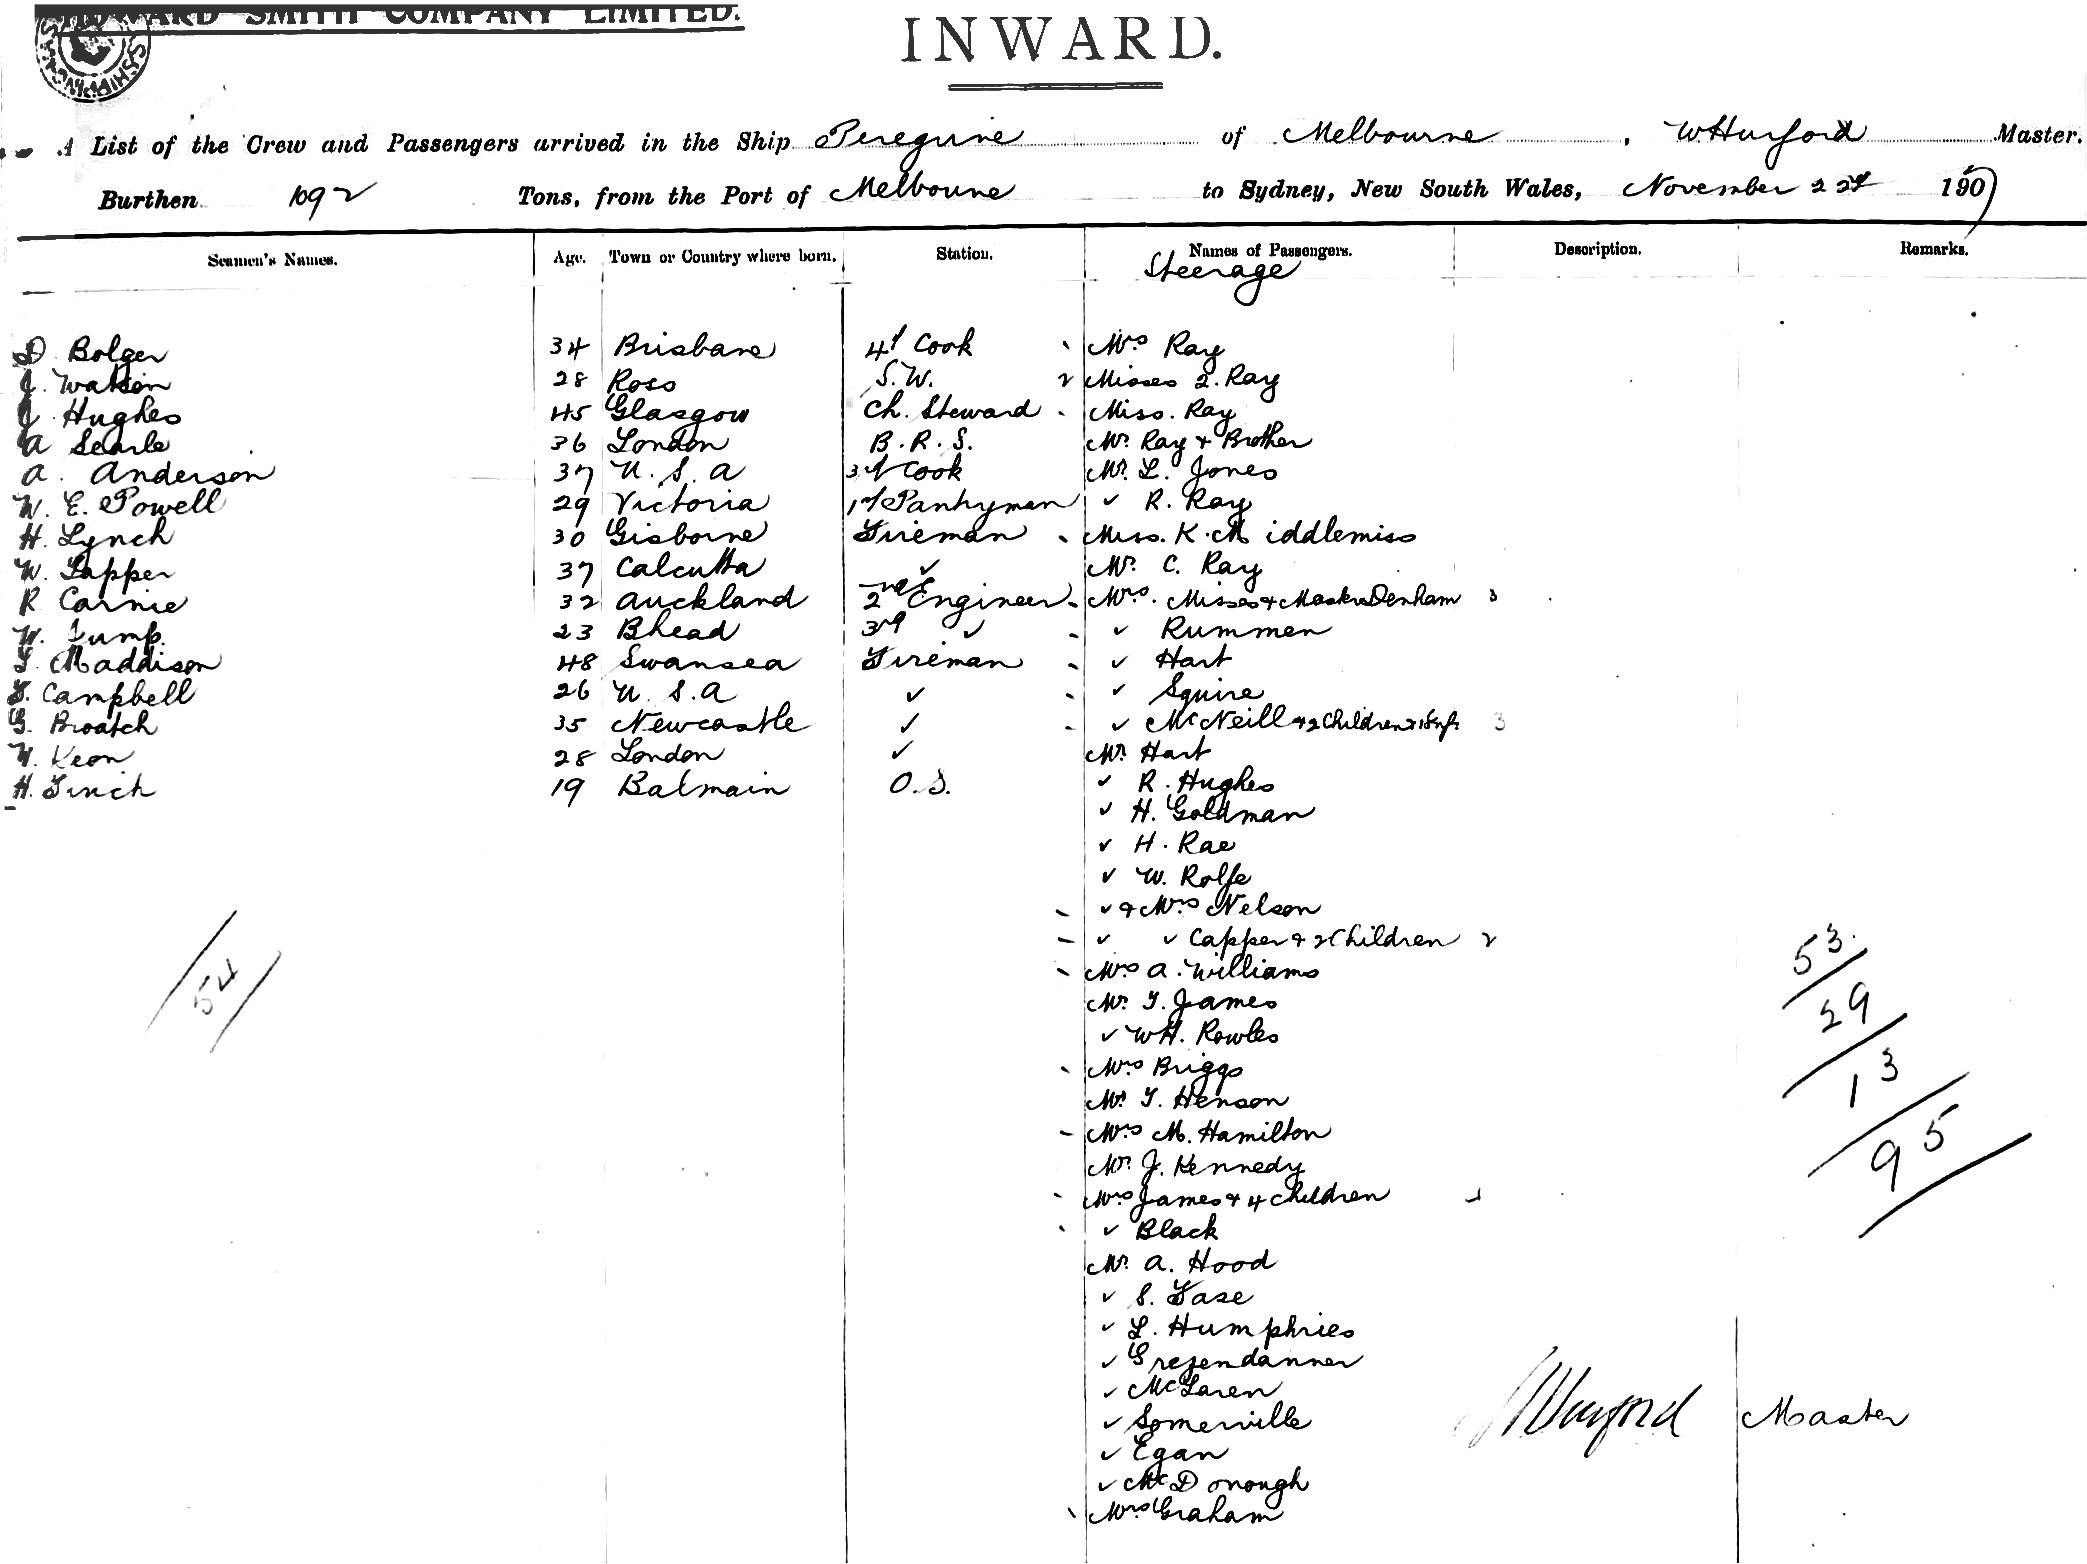 HOWARD SMITH COMPANY LIMITED.
INWARD.
A List of the Crew and Passengers arrived in the Ship Peregrine of Melbourne, W Hurford Master.
Burthen 1092 Tons, from the Port of Melbourne to Sydney, New South Wales, November 22d 1907
Seamen's Names. Age. Town or Country where born. Station. Names of Passengers. Description. Remarks.
Steerage
D Bolger 34 Brisbane 4t Cook Mrs Ray
J. Watson 28 Ross S.W. 2 Misses 2. Ray
J Hughes 45 Glasgow Ch. Steward Miss. Ray
A Searle 36 London B.R.S. Mr. Ray + Brother
A. Anderson 37 U.S.A 3d Cook Mr. L. Jones
W. E. Powell 29 Victoria 1st Pantryman ✓ R. Ray
H. Lynch 30 Gisborne Fireman Miss. K. Middlemiss
W. Tapper 37 Calcutta ✓ Mr. C. Ray
R Carnie 32 Auckland 2nd Engineer Mrs. Misses + Master Denham 3
W. Jump. 23 Bhead 3rd ✓ ✓ Rummen
T. Maddison 48 Swansea Fireman ✓ Hart
F. Campbell 26 U.S.A ✓ ✓ Squire
G. Broatch 35 Newcastle ✓ ✓ McNeill + 2 Children + 1 Inf. 3
W. Keon 28 London ✓ Mr. Hart
H. Finch 19 Balmain O.S. ✓ R. Hughes
✓ H. Goldman
✓ H. Rae
✓ W. Rolfe
✓ + Mrs Nelson
✓ ✓ Capper + 2 Children 2
Mrs A. Williams
Mr. T. James
✓ W H. Rowles
Mrs Briggs
Mr. T. Henson
Mrs M. Hamilton
Mr. J. Kennedy
Mrs James + 4 Children
✓ Black
Mr. A. Hood
✓ S. Fase
✓ L. Humphries
✓ Gresendanner
✓ McLaren
✓ Somerville
✓ Egan
✓ McDonough
Mrs Graham
54
53
29
13
95
W Hurford Master